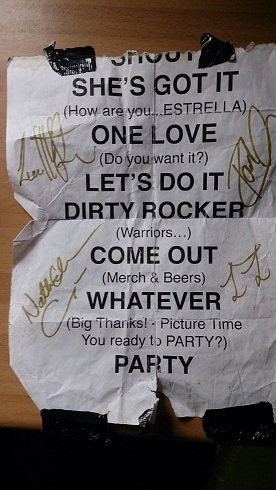 SHOUT
SHE'S GOT IT
(How are you...ESTRELLA)
ONE LOVE
(Do you want it?)
LET'S DO IT
DIRTY ROCKER
(Warriors...)
COME OUT
(Merch & Beers)
WHATEVER
(Big Thanks! - Picture Time
You ready to PARTY?)
PARTY